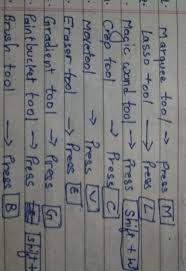 Marquee tool → press M
Lasso tool → Press L
Magic wand tool → Press Shift + W
Crop tool → Press C
Move tool → Press V
Eraser tool → Press E
Gradient tool → Press G
Paintbucket tool → Press Shift +
Brush tool → Press B